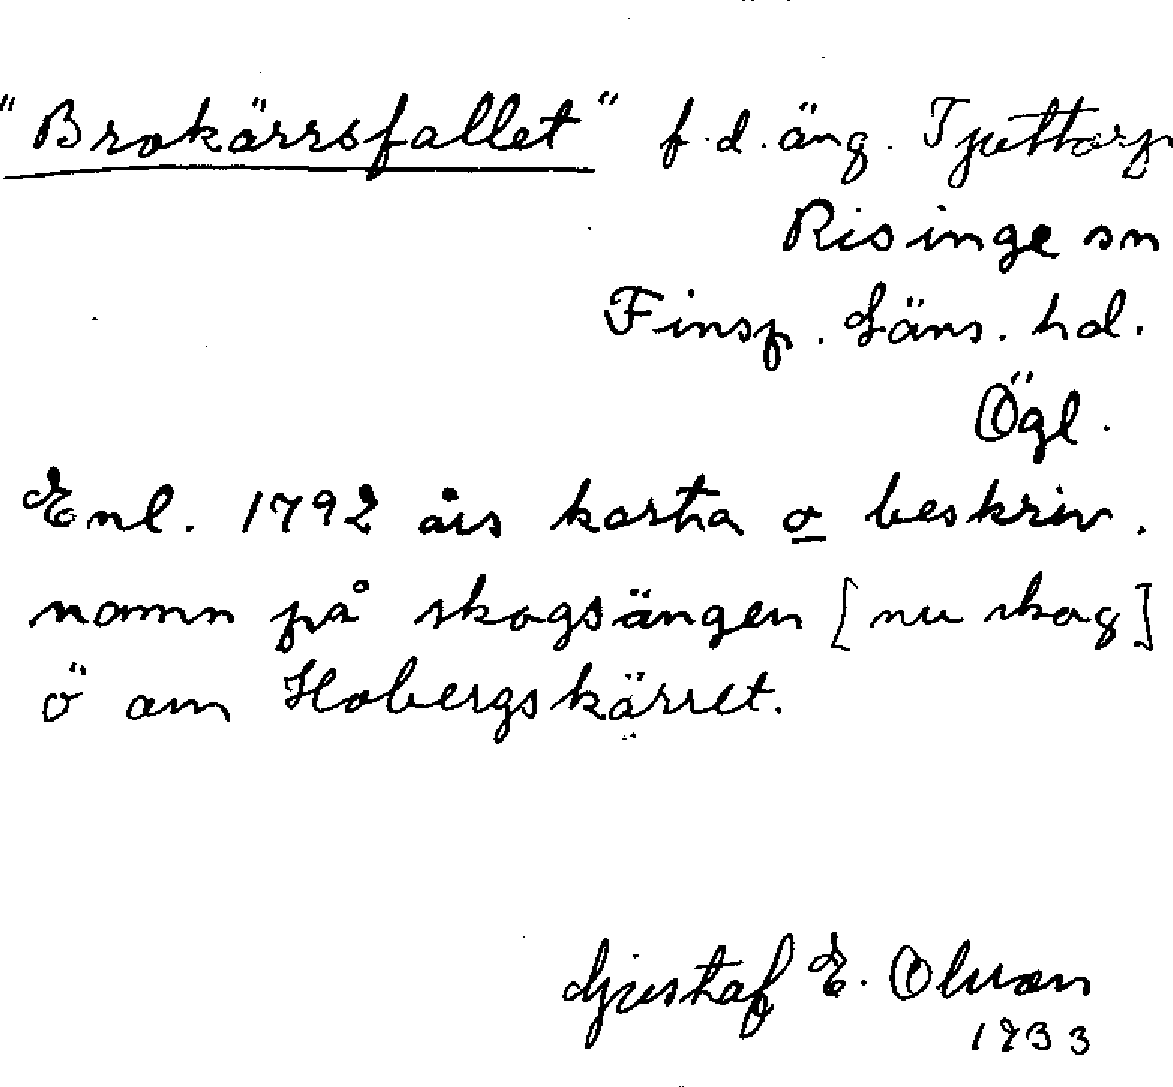 "Brokärrsfallet" f.d. äng. Tjuttorp
Risinge sn
Finsp. Läns. hd.
Ögl.
Enl. 1792 års karta o beskriv.
namn på skogsängen [nu skog]
ö om Hobergskärret.
Gustaf E. Olsson
1933